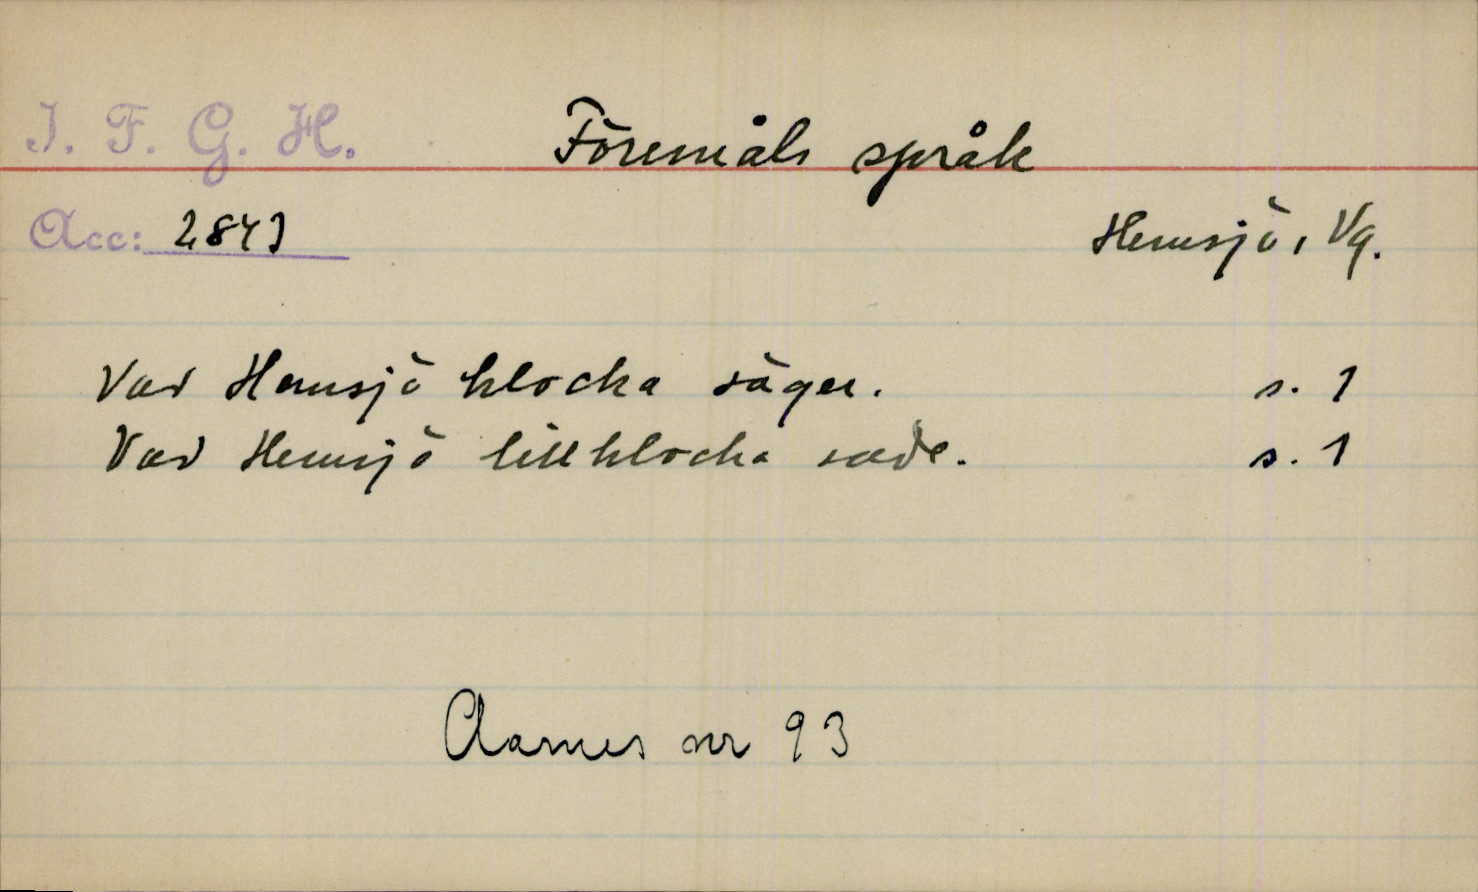 I. F. G. H.
Föremåls språk
Acc: 2843
Hemsjö, Vg.
Vad Hemsjö klocka säger. s. 1
Vad Hemsjö lillklocka sade. s. 1
Aarnes nr 93